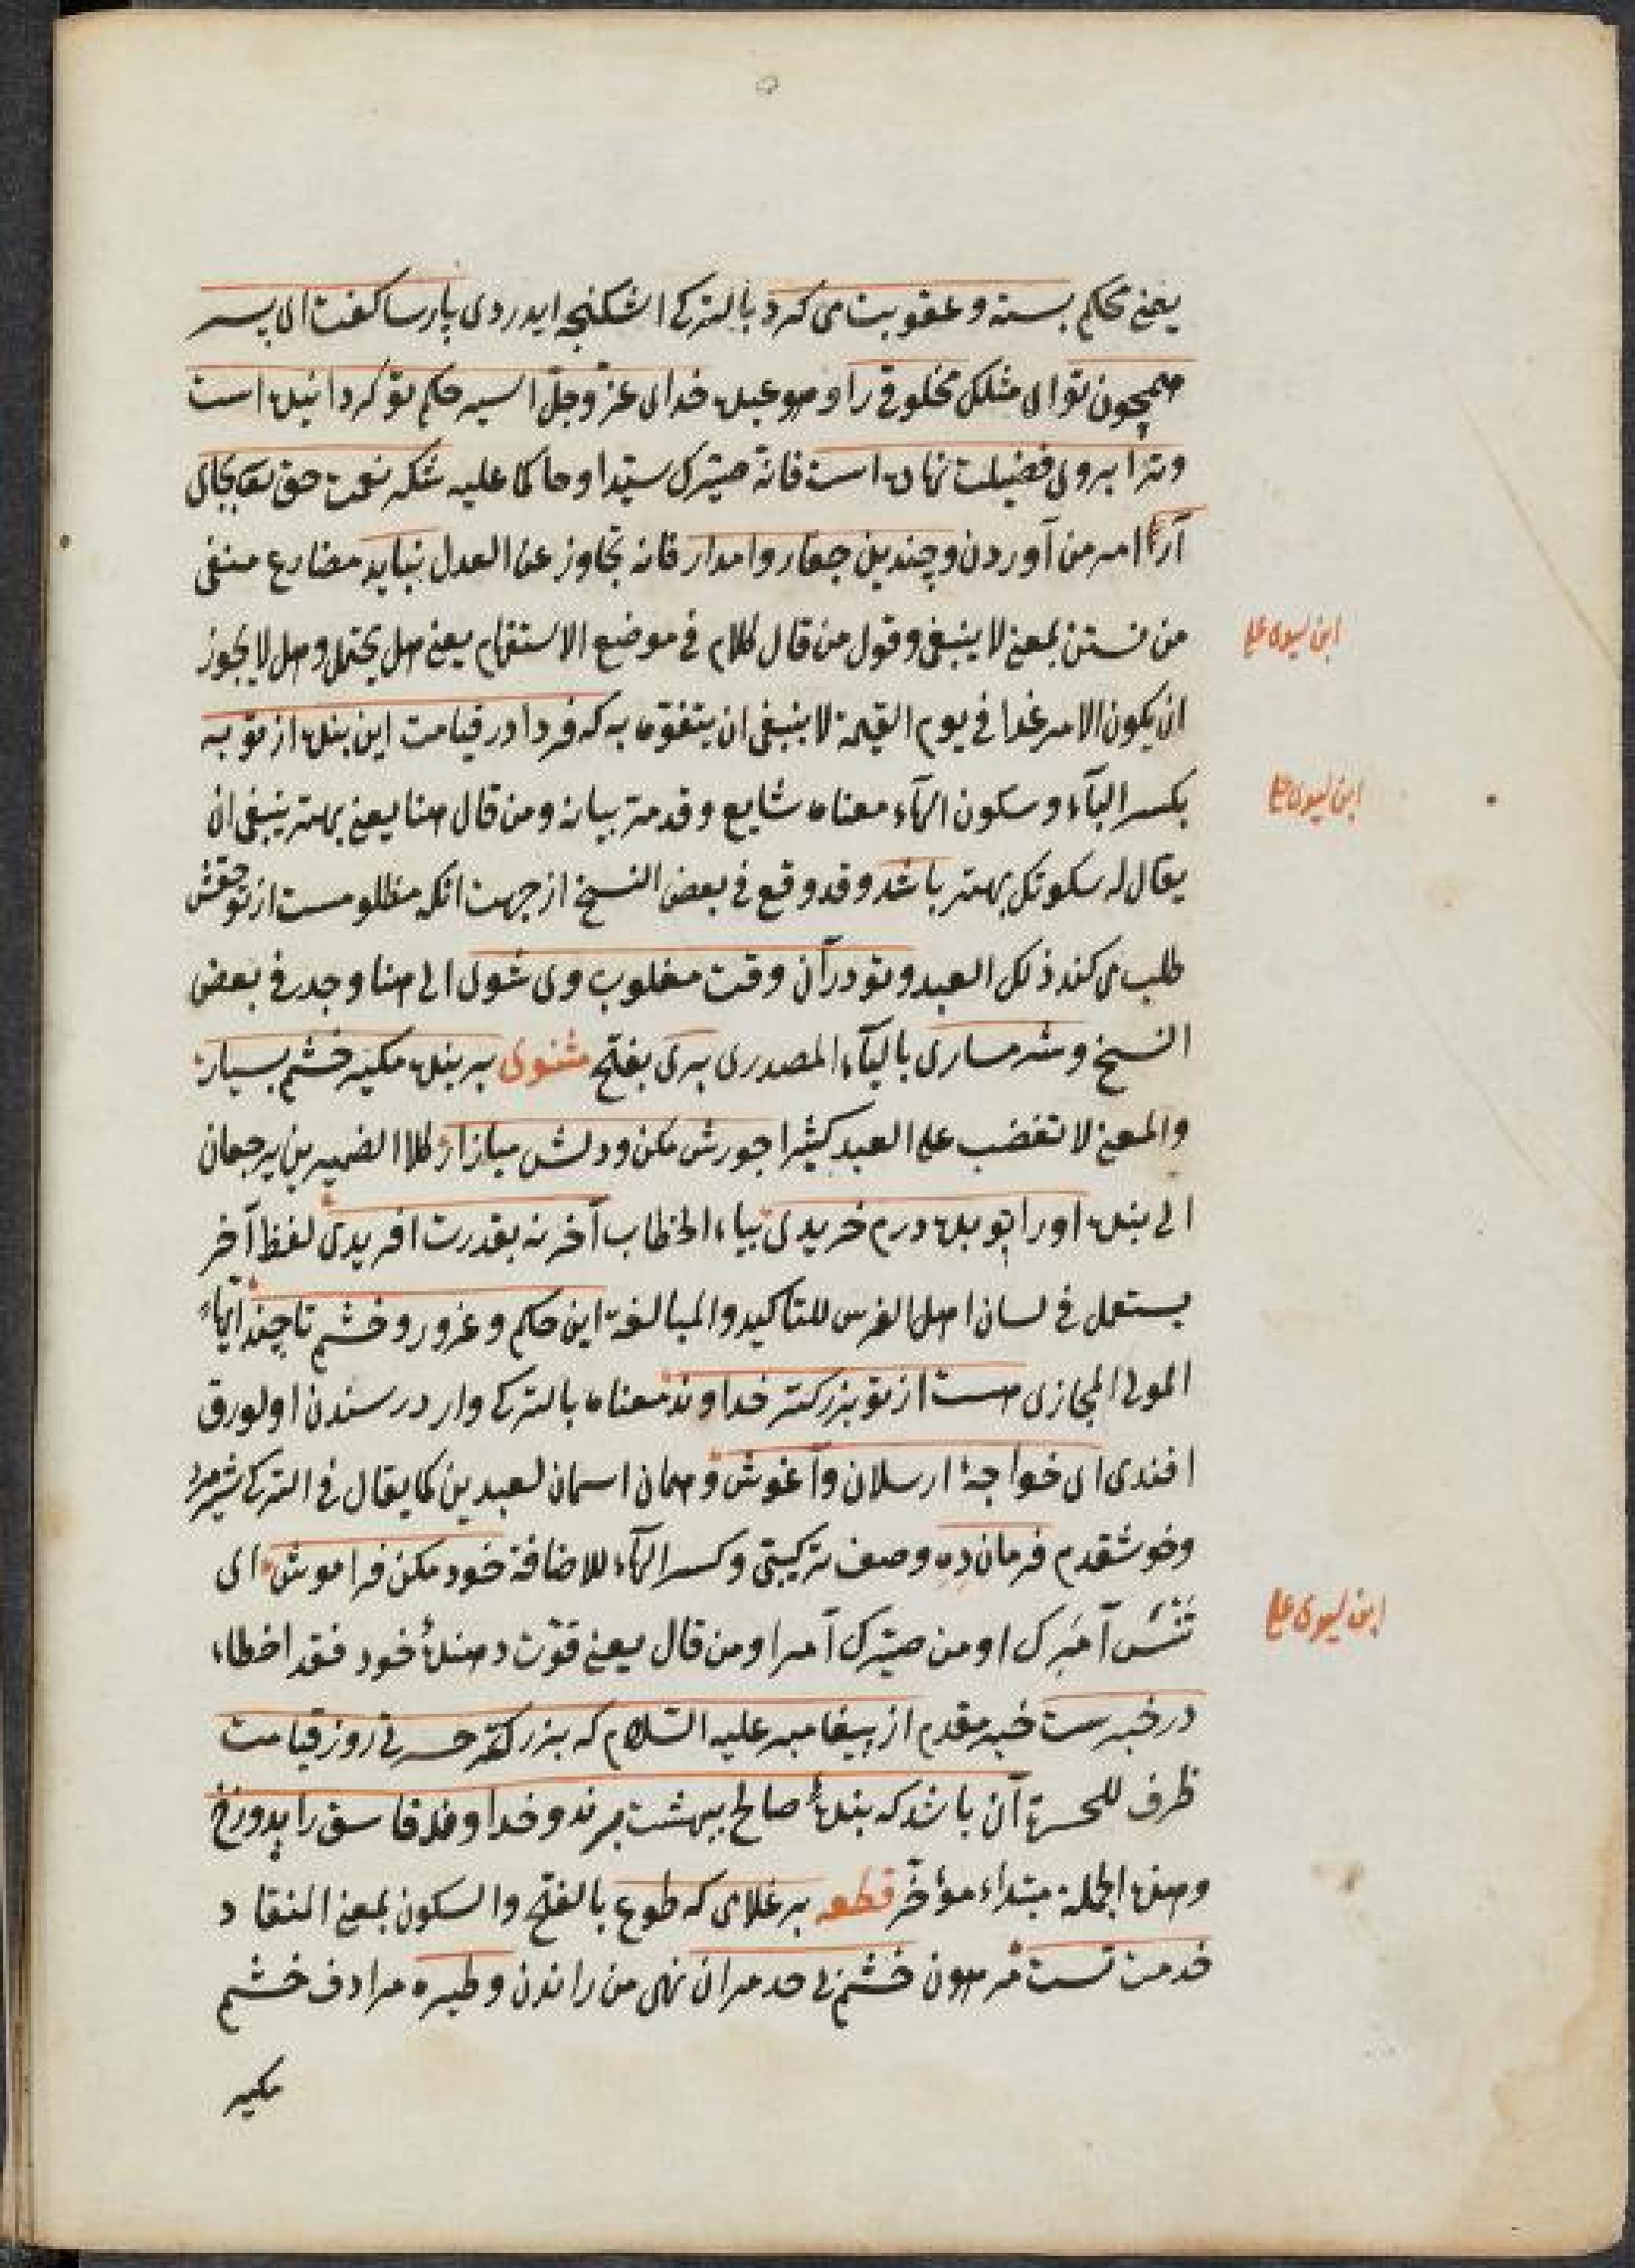 یعنی محکم بسته و عقوبت می کرد بالترکی اشکنجه ایدردی پارسا کفت ای پسر
همچون تو ای مثلک مخلوقی را وهو عبده خدای عز وجل اسیر حکم تو کردانیده است
وترا بروی فضیلت نهاده است فانه صیرک سیدا وحاکما علیه شکر نعمت حق تعا بجای
آر امر من آوردن وچندین جفا روا مدار فانه تجاوز عن العدل نباید مضارع منفی
من بستن بمعنی لا ینبغی وقول من قال کلام فی موضع الاستفهام یعنی هل یحتمل وهل لا یجوز
ابن سیدی علی
ان یکون الامر غدا فی یوم القیمة لا ینبغی ان یتفوه به که فردا در قیامت این بنده از تو به
بکسر الباء وسکون الهاء معناه شایع وقد مر بیانه ومن قال هنا یعنی بهتر ینبغی ان
ابن سیدی علی
یقال له سکوتک بهتر باشد وقد وقع فی بعض النسخ از جهت آنکه مظلومست از تو حقش
طلب می کند ذلک العبد وتو در آن وقت مغلوب وی شوی الی هنا وجد فی بعض
النسخ وشرمساری بالیاء المصدری بری بفتح مثنوی بر بنده مکیر خشم بسیار
والمعنی لا تغضب علی العبد کثیرا جورش مکن ودلش میازار کلا الضمیرین یرجعان
الی بنده اورا تو بده درم خریدی بیاء الخطاب آخر نه بقدرت افریدی لفظ آخر
یستعمل فی لسان اهل الفرس للتاکید والمبالغة این حکم وغرور وخشم تا چند ایها
المولی المجازی هست از تو بزرکتر خداوند معناه بالترکی وار در سندن اولورق
افندی ای خواجهٔ ارسلان وآغوش وهمان اسمان لعبدین کما یقال فی الترکی
وخوشقدم فرمان ده وصف ترکیبی وکسر الهاء للاضافة خود مکن فراموش ای
تنس آمرک او من صیرک آمرا ومن قال یعنی قوت دهندهٔ خود فقد اخطاء
ابن سیدی علی
در خبرست خبر مقدم از پیغامبر علیه السلام که بزرکتر حسرتی روز قیامت
ظرف للحسرة آن باشد که بندهٔ صالح ببهشت برند وخداوند فاسق را بدوزخ
وهذه الجملة مبتداء مؤخر قطعه بر غلامی که طوع بالفتح والسکون بمعنی المنقاد
خدمت تست خشم بی حد مران نهی من راندن وطیره مرادف خشم
مکیر